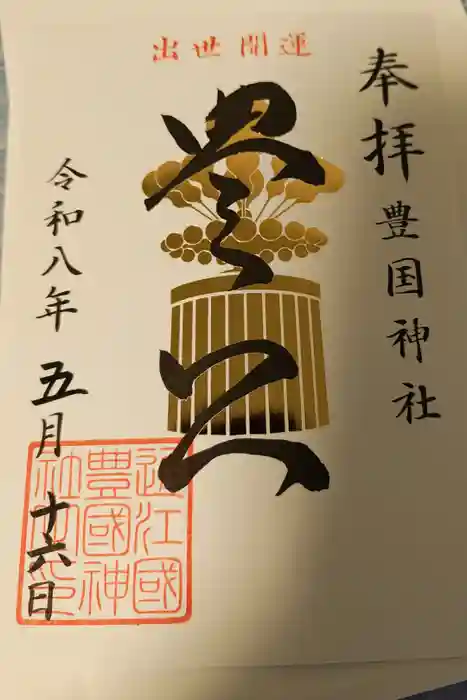 出世開運
奉拝 豊国神社
令和八年 五月十六日
近江國
豊國神
社之印